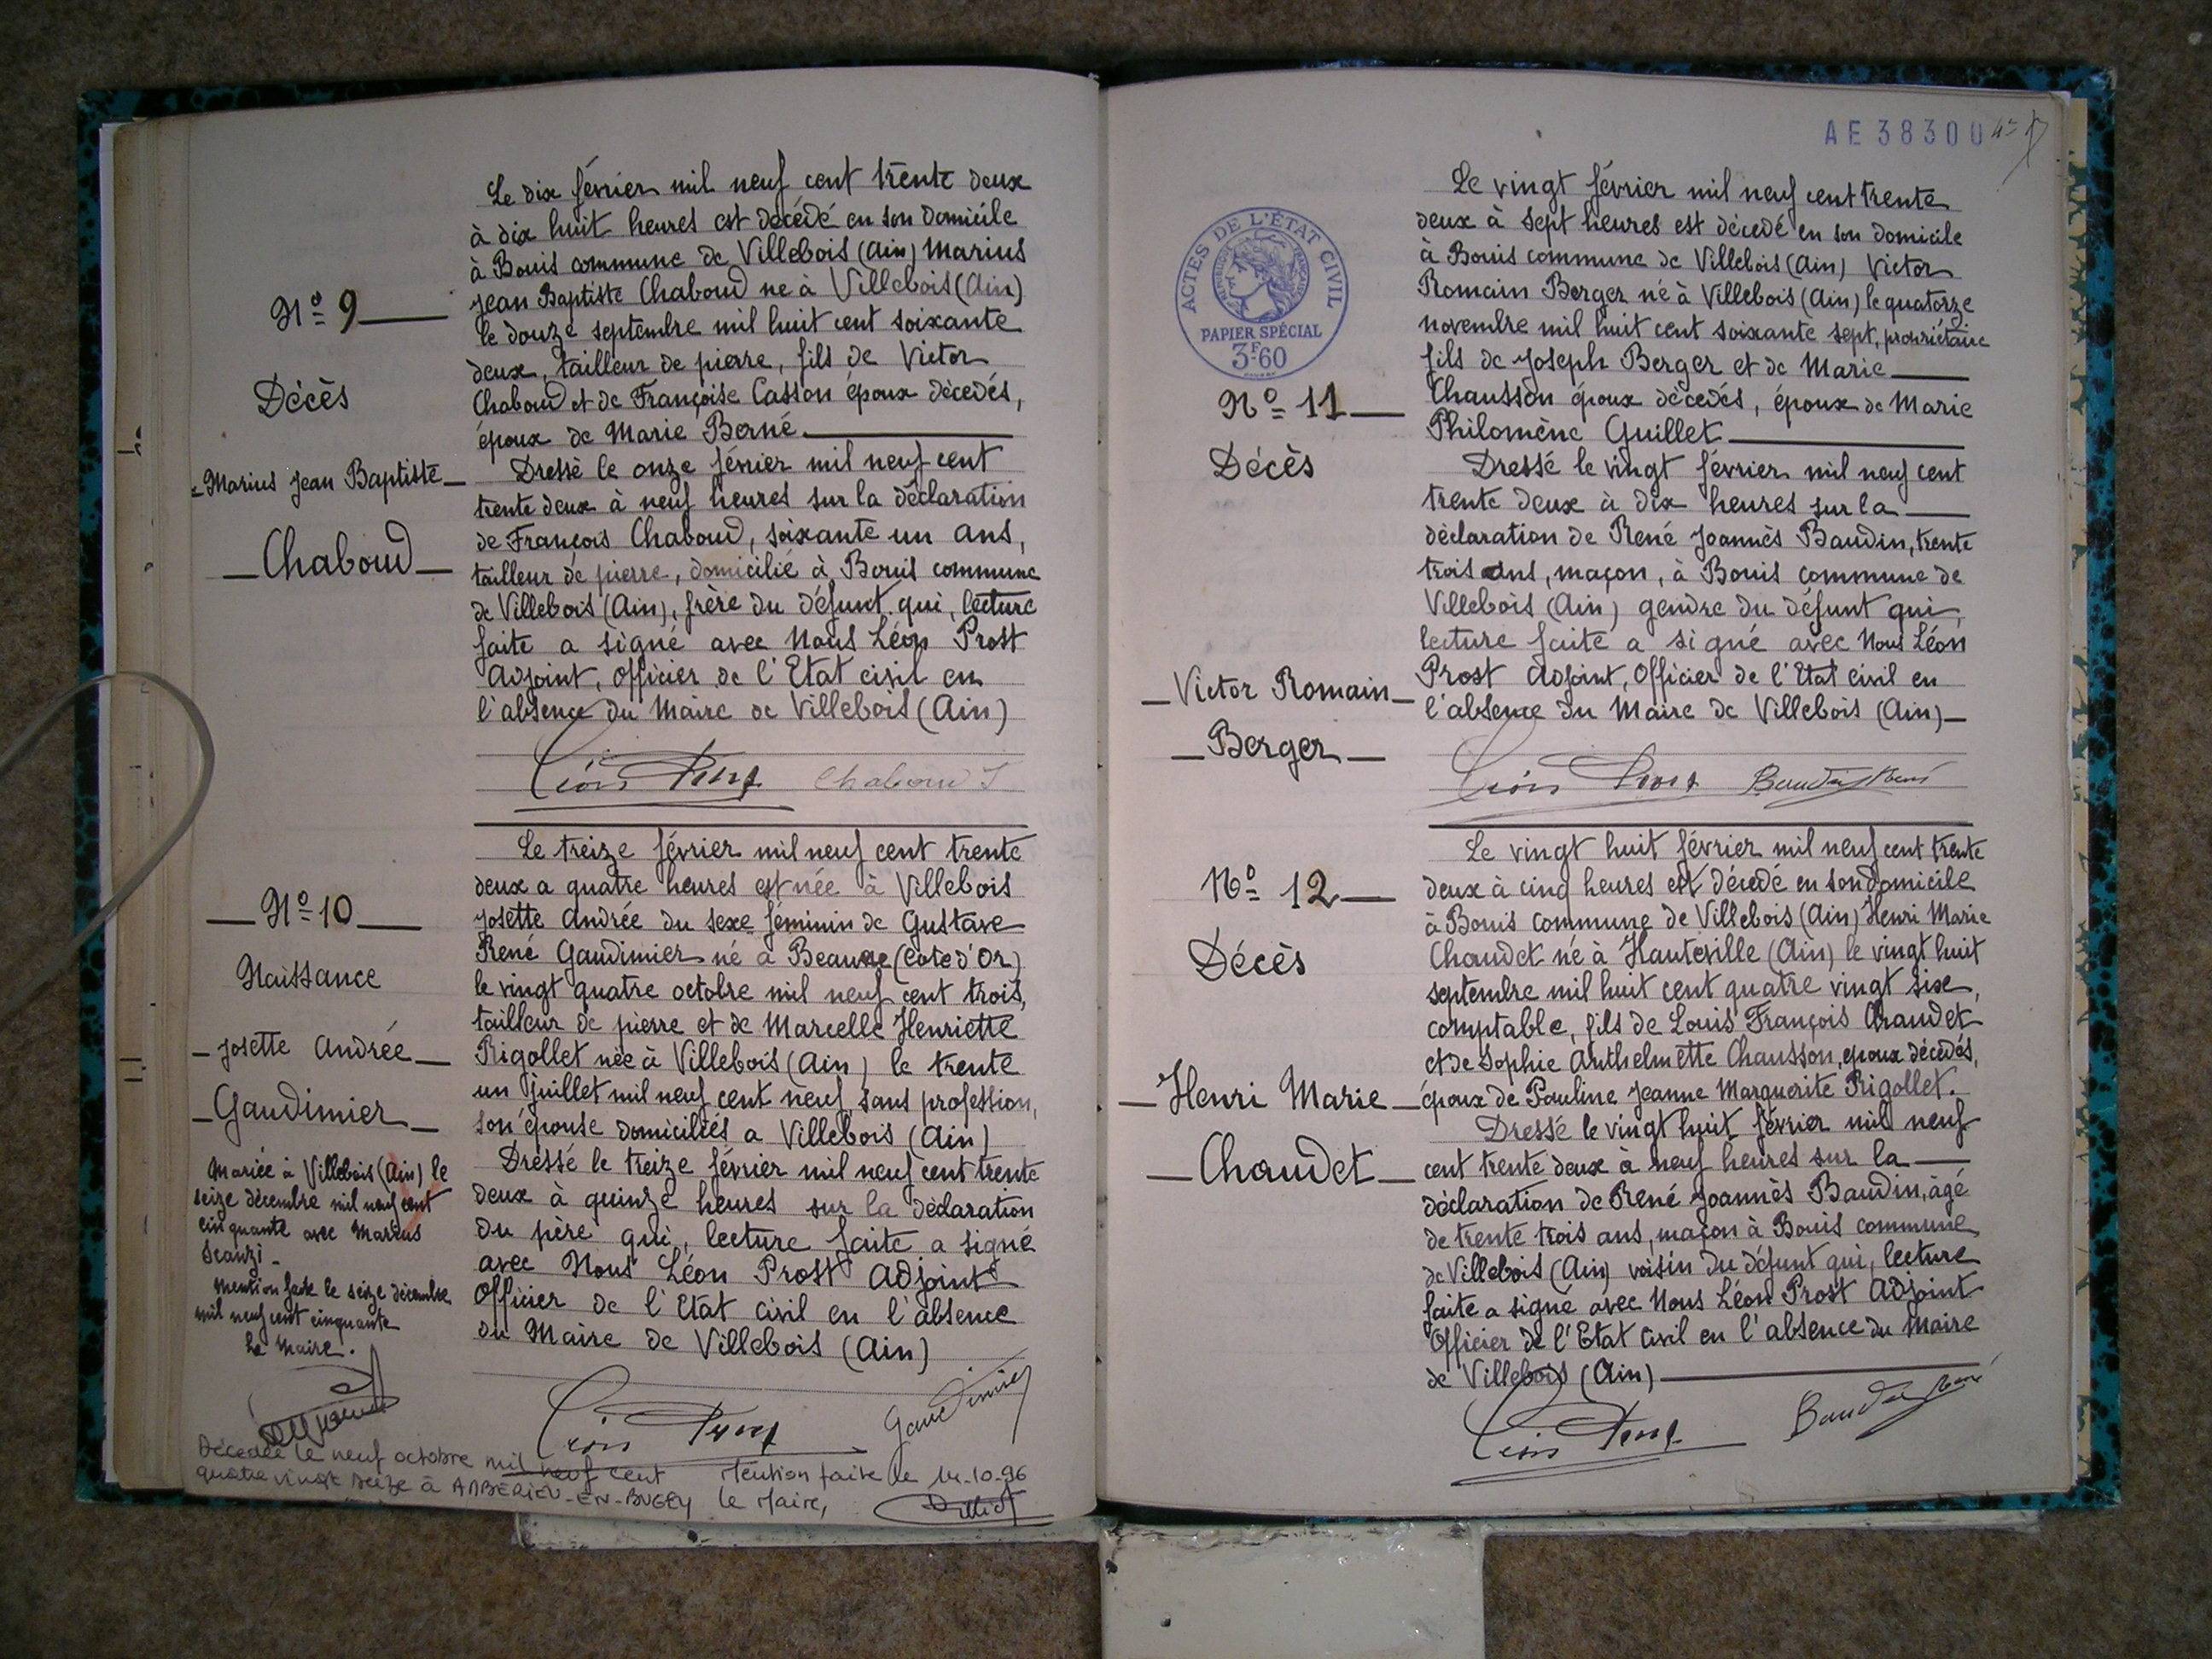 Le dix février mil neuf cent trente deux
à dix huit heures est décédé en son domicile
à Bouis commune de Villebois (Ain) Marius
Jean Baptiste Chaboud né à Villebois (Ain)
le douze septembre mil huit cent soixante
deux, tailleur de pierre, fils de Victor
Chaboud et de Françoise Casson époux décédés,
époux de Marie Berné.
Dressé le onze février mil neuf cent
trente deux à neuf heures sur la déclaration
de François Chaboud, soixante un ans,
tailleur de pierre, domicilié à Bouis commune
de Villebois (Ain), frère du défunt qui, lecture
faite a signé avec Nous Léon Prost
Adjoint, Officier de l'Etat civil en
l'absence du Maire de Villebois (Ain)
N° 9
Décès
Marius Jean Baptiste
Chaboud
Léon Prost Chaboud
Le treize février mil neuf cent trente
deux a quatre heures est née à Villebois
Josette Andrée du sexe féminin de Gustave
René Gaudimier né à Beaune (Côte d'Or)
le vingt quatre octobre mil neuf cent trois,
tailleur de pierre et de Marcelle Henriette
Rigollet née à Villebois (Ain) le trente
un Juillet mil neuf cent neuf, sans profession,
son épouse domiciliés a Villebois (Ain)
Dressé le treize février mil neuf cent trente
deux à quinze heures sur la déclaration
du père qui, lecture faite a signé
avec Nous Léon Prost Adjoint
Officier de l'Etat civil en l'absence
du Maire de Villebois (Ain)
N° 10
Naissance
Josette Andrée
Gaudimier
Mariée à Villebois (Ain) le
seize décembre mil neuf cent
cinquante avec Marius
Scanzi
Mention faite le seize décembre
mil neuf cent cinquante
Le Maire.
Léon Prost Gaudimier
Décédée le neuf octobre mil neuf cent
quatre vingt seize à AMBERIEU-EN-BUGEY
Mention faite le 14-10-96
Le Maire,
AE 38300
ACTES DE L'ÉTAT CIVIL
PAPIER SPÉCIAL
3F60
Le vingt février mil neuf cent trente
deux à sept heures est décédé en son domicile
à Bouis commune de Villebois (Ain) Victor
Romain Berger né à Villebois (Ain) le quatorze
novembre mil huit cent soixante sept, propriétaire
fils de Joseph Berger et de Marie
Chausson époux décédés, époux de Marie
Philomène Guillet
Dressé le vingt février mil neuf cent
trente deux à dix heures sur la
déclaration de René Joannès Baudin, trente
trois ans, maçon, à Bouis commune de
Villebois (Ain) gendre du défunt qui,
lecture faite a signé avec Nous Léon
Prost Adjoint, Officier de l'Etat civil en
l'absence du Maire de Villebois (Ain)
N° 11
Décès
Victor Romain
Berger
Léon Prost Baudin René
Le vingt huit février mil neuf cent trente
deux à cinq heures est décédé en son domicile
à Bouis commune de Villebois (Ain) Henri Marie
Chaudet né à Hauteville (Ain) le vingt huit
septembre mil huit cent quatre vingt six,
comptable, fils de Louis François Chaudet
et de Sophie Anthelmette Chausson, époux décédés,
époux de Pauline Jeanne Marguerite Rigollet.
Dressé le vingt huit février mil neuf
cent trente deux à neuf heures sur la
déclaration de René Joannès Baudin, âgé
de trente trois ans, maçon à Bouis commune
de Villebois (Ain) voisin du défunt qui, lecture
faite a signé avec Nous Léon Prost Adjoint
Officier de l'Etat civil en l'absence du Maire
de Villebois (Ain)
N° 12
Décès
Henri Marie
Chaudet
Léon Prost Baudin René